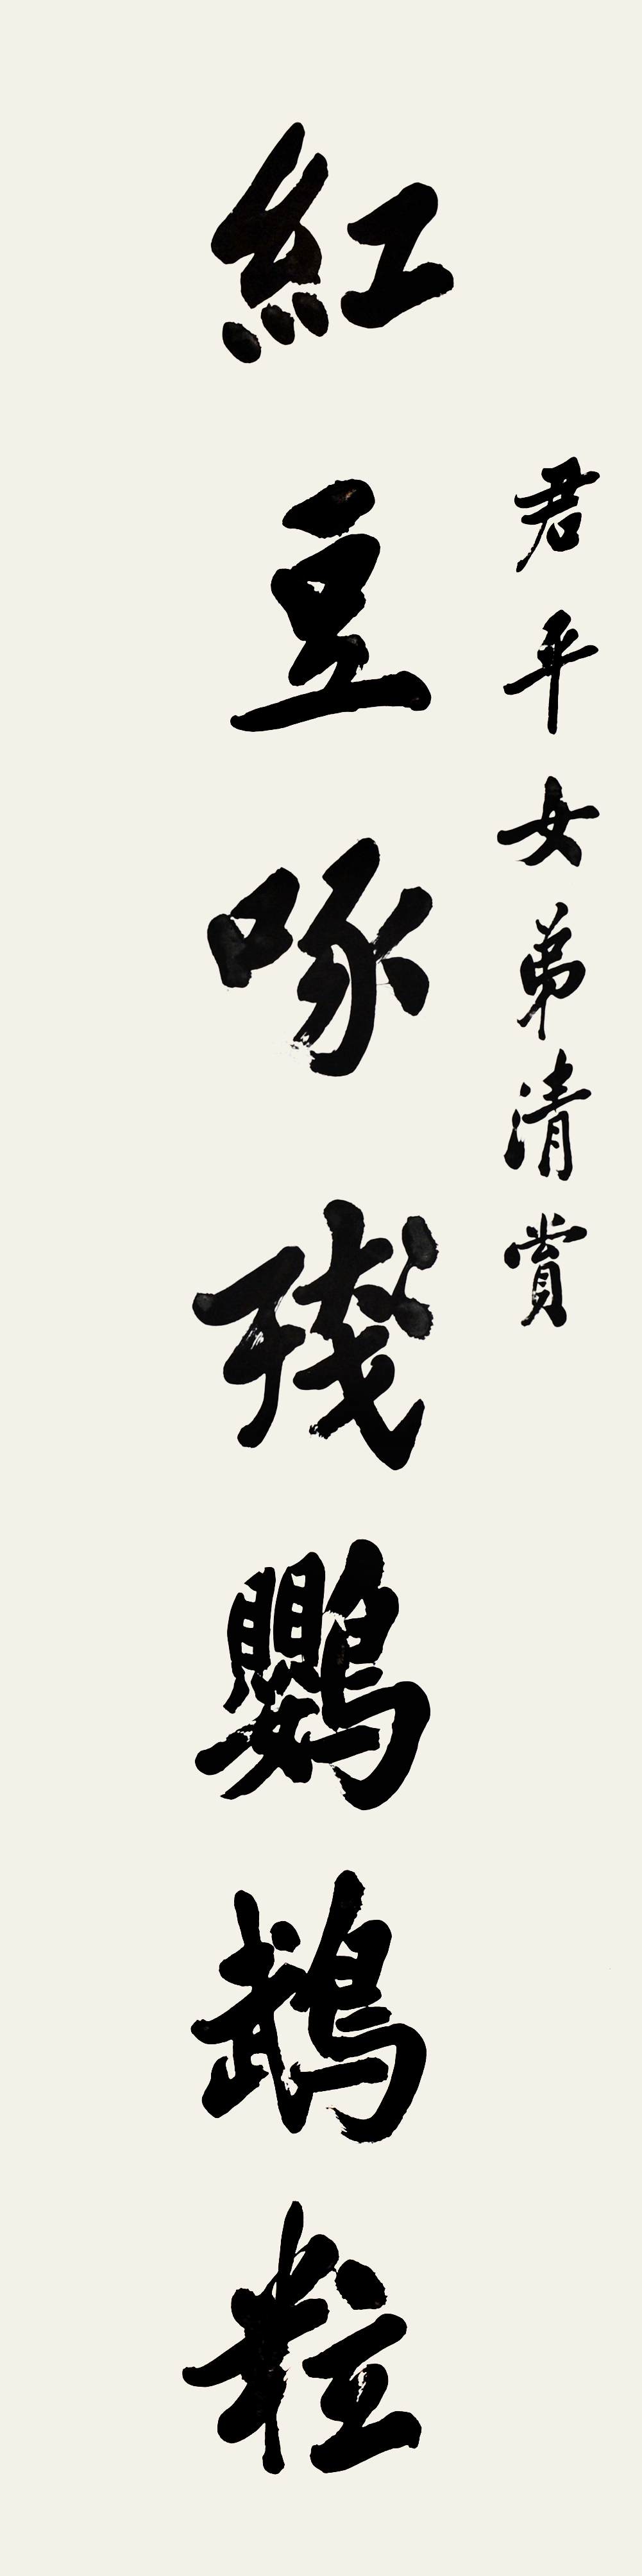 君平女弟清賞
紅豆啄殘鸚鵡粒